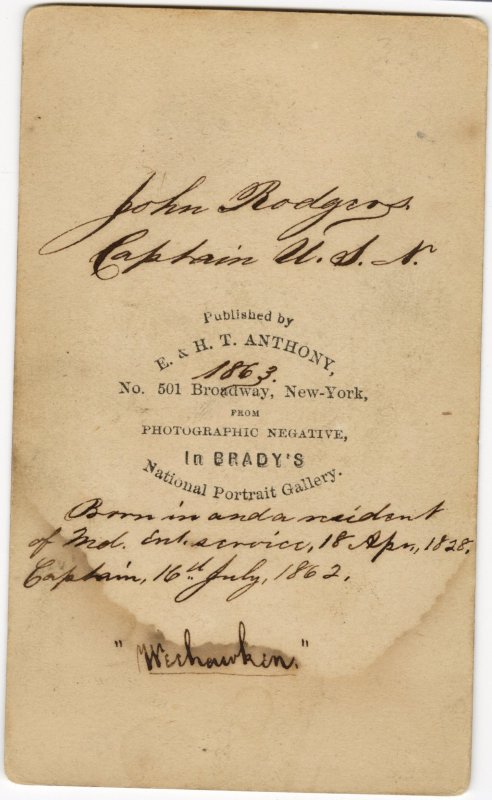 John Rodgers.
Captain U. S. N.
Published by
E. & H. T. ANTHONY,
1863.
No. 501 Broadway, New-York,
FROM
PHOTOGRAPHIC NEGATIVE,
In BRADY'S
National Portrait Gallery.
Born in and a resident
of Md. Ent. service, 18 Apr, 1828.
Captain, 16th July, 1862.
"Weehawken."